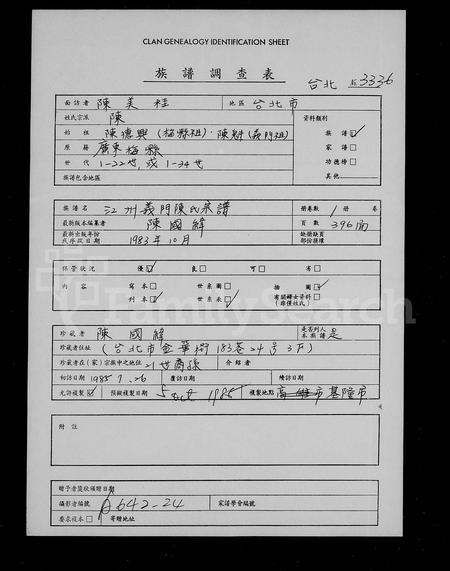 CLAN GENEALOGY IDENTIFICATION SHEET
族譜調查表
台北 3336
面訪者 陳美桂 地區 台北市
姓氏宗派 陳 資料類別
始祖 陳德興(梅縣祖)·陳(義門祖) 族譜☑
原籍 廣東梅縣 家譜□
世代 1-22世,或1-34世 功德榜□
族譜包含地區 其他
譜名 江州義門陳氏宗譜 冊卷數 1 冊 卷
最新版本編纂者 陳國緯 頁數 396面
最新出版年份或序跋日期 1983年10月 缺燬缺頁部份種種
保管狀況 優☑ 良□ 可□ 劣□
內容 寫本□ 世系圖□ 插圖☑
刊本☑ 世系表☑ 有關婦女資料□(非僅姓氏)
珍藏者 陳國緯 是否列入本族譜 是
珍藏者住址 (台北市金華街183巷24号3F)
珍藏者在(家)宗族中之地位 21世裔孫 介紹者
初訪日期 1985.7.26 覆訪日期 續訪日期
允許複製☑ 預擬複製日期 5 Oct 1985 複製地點 高雄市基隆市
附註
贈予者簽收領贈日期
攝影者編號 A642-24 家譜學會編號
要求複本□ 寄贈地址
FamilySearch